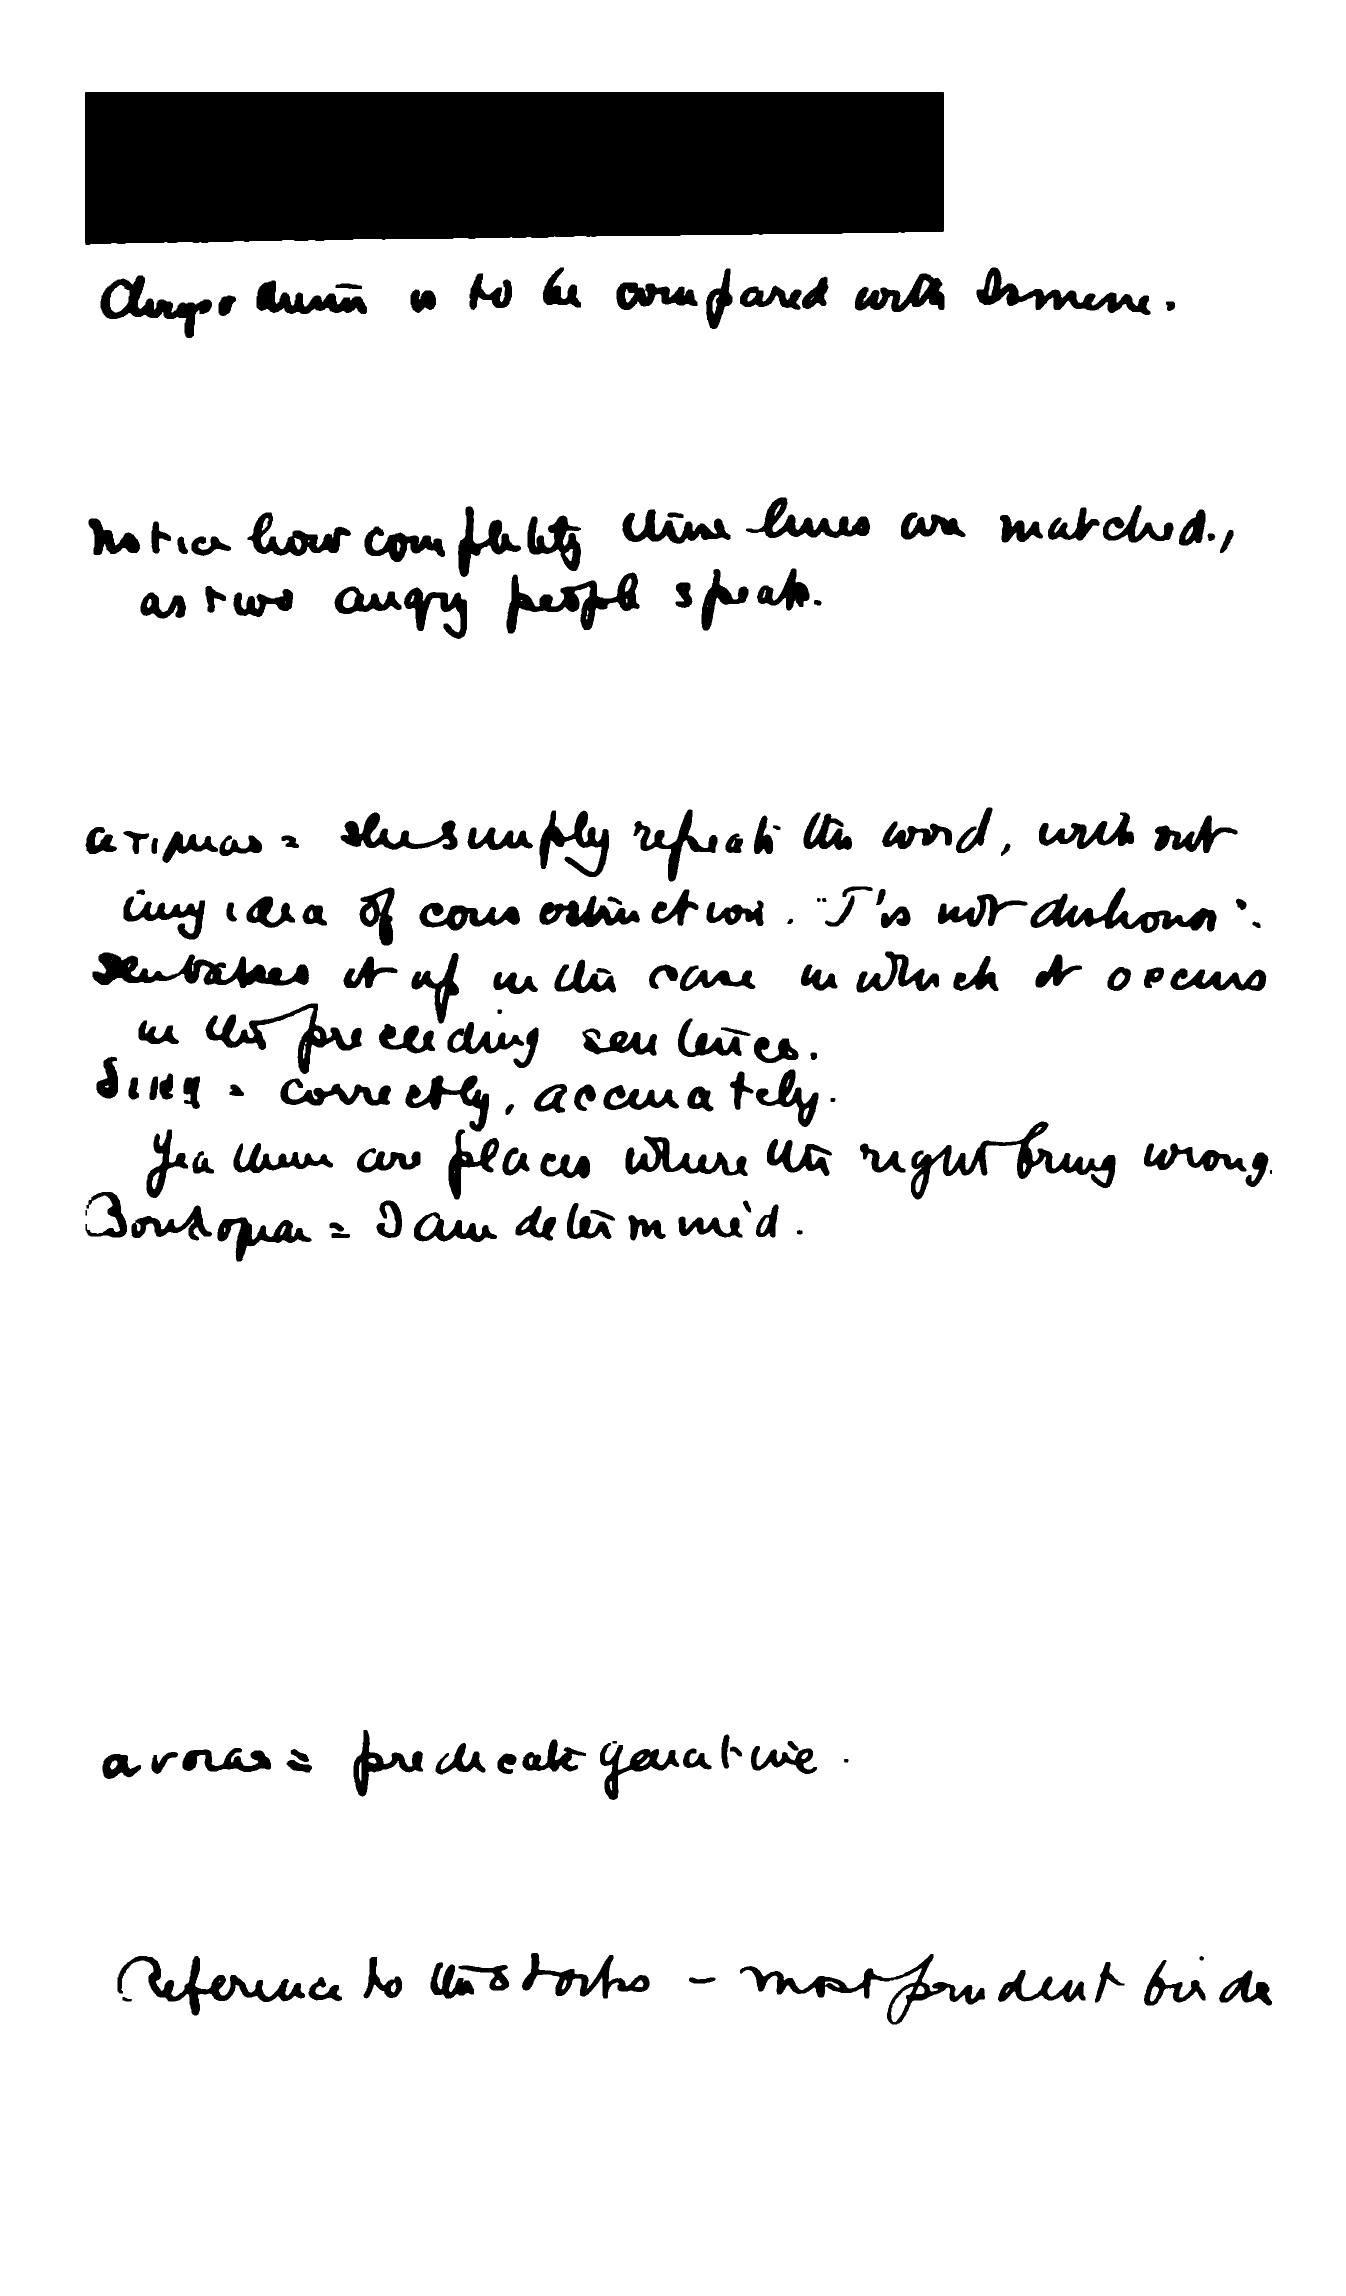 Chrysothemis is to be compared with Ismene.
Notice how completely these lines are matched.,
as two angry people speak.
ατιμιας = she simply repeats the word, without
any idea of construction. "T'is not dishonor".
She takes it up in the case in which it occurs
in the preceeding sentences.
δικη = correctly, accurately.
Yea there are places where the right bring wrong.
Βουλομαι = I am determined.
= predicate genitive.
Reference to the storks – most prudent birds